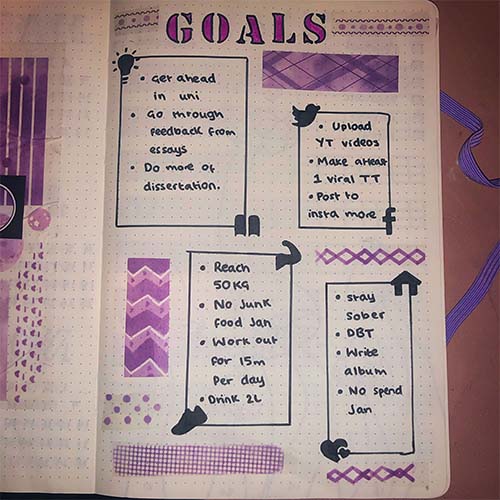 GOALS
• Get ahead
in uni
• Go through
feedback from
essays
• Do more of
dissertation.
• Upload
YT videos
• Make atleast
1 viral TT
• Post to
insta more
• Reach
50KG
• No Junk
food Jan
• Work out
for 15m
Per day
• Drink 2L
• Stay
sober
• DBT
• Write
album
• No spend
Jan